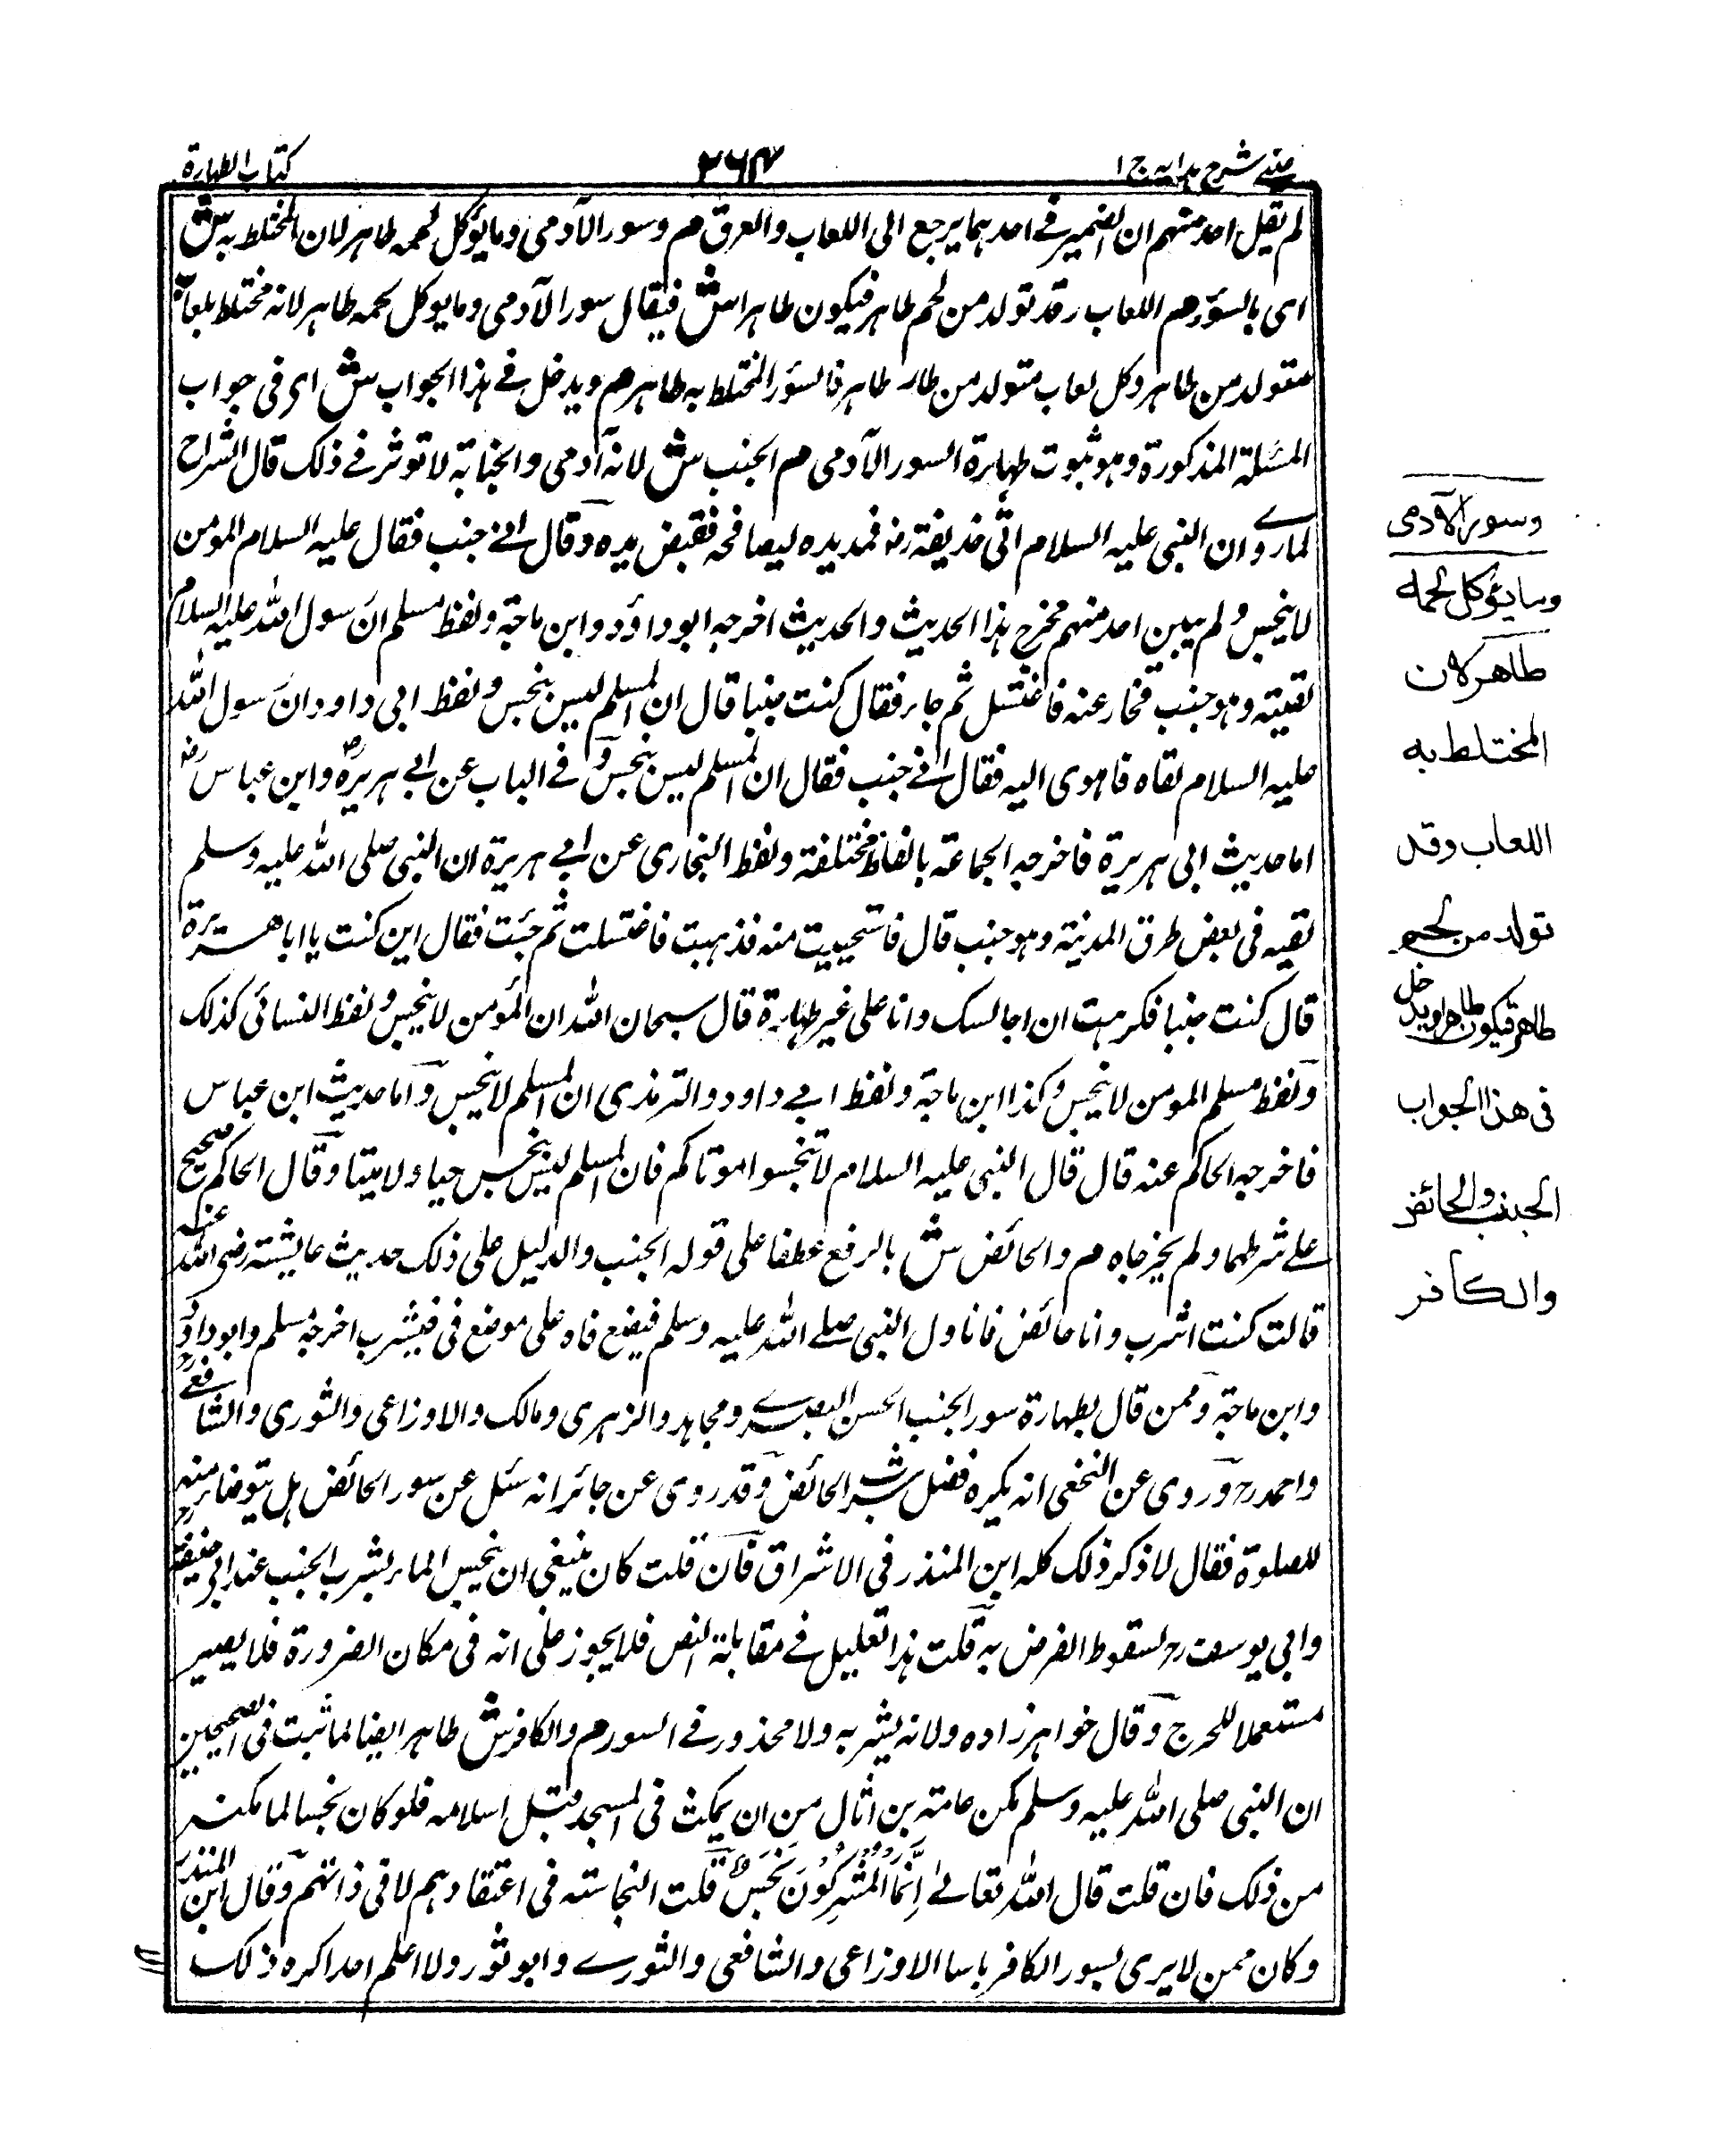 عینی شرح ہدایہ ج ۱
۲۶۴
کتاب الطہارة
لم یقل احد منہم ان الضمیر فے احدہما یرجع الی اللعاب والعرق م وسور الآدمی وما یؤکل لحمہ طاہر لان المختلط بہ ش
ای بالسؤر م اللعاب وقد تولد من لحم طاہر فیکون طاہرا ش فیقال سور الآدمی وما یوکل لحمہ طاہر لانہ مختلط بلعاب
متولد من طاہر وکل لعاب متولد من طاہر طاہر فالسؤر المختلط بہ طاہر م ویدخل فے ہذا الجواب ش ای فی جواب
المسئلة المذکورة وہو ثبوت طہارة السور الآدمی م الجنب ش لانہ آدمی والجنابة لا توثر فے ذلک قال الشراح
لما روے ان النبی علیہ السلام اتی حذیفة رض فمد یدہ لیصافحہ فقبض یدہ وقال انی جنب فقال علیہ السلام المومن
لا ینجس ولم یبین احد منہم مخرج ہذا الحدیث والحدیث اخرجہ ابو داؤد وابن ماجة ولفظ مسلم ان رسول اللہ علیہ السلام
لقیتہ وہو جنب فحار عنہ فاغتسل ثم جاء فقال کنت جنبا قال ان المسلم لیس بنجس ولفظ ابی داود ان رسول اللہ
علیہ السلام لقاہ فاہوی الیہ فقال انی جنب فقال ان المسلم لیس بنجس و فے الباب عن ابے ہریرة رض وابن عباس رض
اما حدیث ابی ہریرة فاخرجہ الجماعة بالفاظ مختلفة ولفظ البخاری عن ابے ہریرة ان النبی صلی اللہ علیہ وسلم
لقیہ فی بعض طرق المدینة وہو جنب قال فاستحییت منہ فذہبت فاغتسلت ثم جئت فقال این کنت یا ابا ہریرة
قال کنت جنبا فکرہت ان اجالسک وانا علی غیر طہارة قال سبحان اللہ ان المؤمن لا ینجس ولفظ النسائی کذلک
ولفظ مسلم المومن لا ینجس وکذا ابن ماجة ولفظ ابے داود والترمذی ان المسلم لا ینجس واما حدیث ابن عباس
فاخرجہ الحاکم عنہ قال قال النبی علیہ السلام لا تنجسوا موتاکم فان المسلم لیس بنجس حیا ولا میتا وقال الحاکم صحیح
علے شرطہما ولم یخرجاہ م والحائض ش بالرفع عطفا علی قولہ الجنب والدلیل علی ذلک حدیث عایشة رضی اللہ عنہا
قالت کنت اشرب وانا حائض فاناول النبی صلے اللہ علیہ وسلم فیضع فاہ علی موضع فی فیشرب اخرجہ مسلم وابو داؤد
وابن ماجة وممن قال بطہارة سور الجنب الحسن البصرے ومجاہد والزہری ومالک والاوزاعی والثوری والشافعے
واحمد رح وروی عن النخعی انہ یکرہ فضل شرب الحائض وقد روی عن جابر انہ سئل عن سور الحائض ہل یتوضا منہ
للصلوة فقال لا ذکر ذلک کلہ ابن المنذر فی الاشراق فان قلت کان ینبغی ان ینجس الماء بشرب الجنب عند ابی حنیفة رح
وابی یوسف رح لسقوط الفرض بہ قلت ہذا تعلیل فے مقابلة النص فلا یجوز علی انہ فی مکان الضرورة فلا یصیر
مستعملا للحرج وقال خواہر زادہ ولانہ یشربہ ولا محذور فے السور م والکافر ش طاہر ایضا لما ثبت فی الصحیحین
ان النبی صلی اللہ علیہ وسلم مکن ثمامة بن اثال من ان یمکث فی المسجد قبل اسلامہ فلو کان نجسا لما مکنہ
من ذلک فان قلت قال اللہ تعالے اِنَّمَا الْمُشْرِکُوْنَ نَجَسٌ قلت النجاسة فی اعتقادہم لا فی ذاتہم وقال ابن المنذر
وکان ممن لا یری بسور الکافر باسا الاوزاعی والشافعی والثورے وابو ثور ولا اعلم احدا کرہ ذلک
وسور الآدمی
وما یؤکل لحمہ
طاهر لان
المختلط به
اللعاب وقد
تولد من لحم
طاهر فیکون طاهرا ویدخل
فی هذا الجواب
الجنب والحائض
والکافر